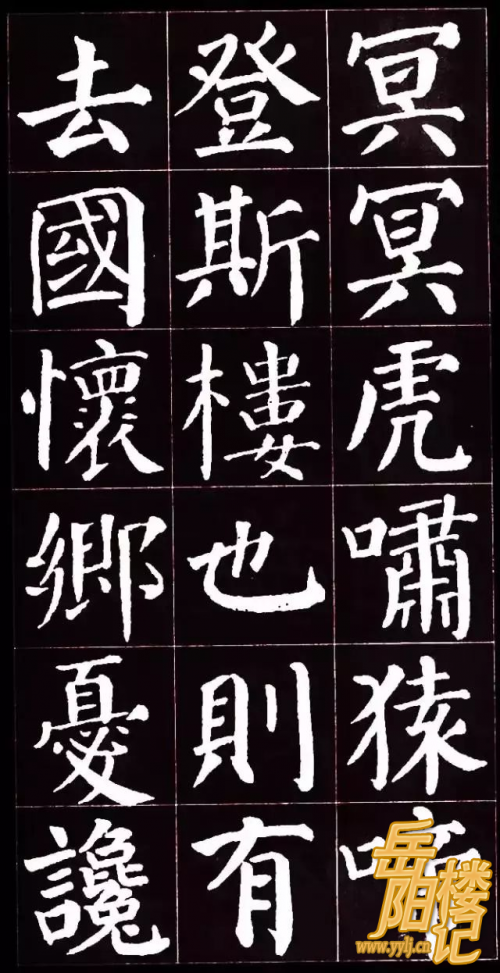 冥冥虎嘯猿啼
登斯樓也則有
去國懷鄉憂讒
岳阳楼记
www.yylj.cn